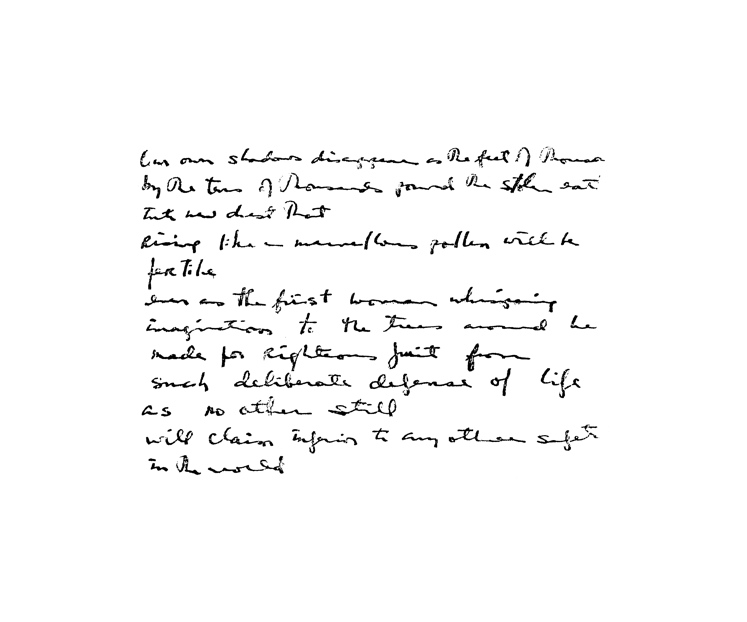 Our own shadows disappear as the feet of thousan
by the tens of thousands pound the stolen eart
into new dust that
rising like a marvellous pollen will be
fertile
even as the first woman whispering
imagination to the trees around he
made for righteous fruit from
such deliberate defense of life
as no other still
will claim inferior to any other safet
in the world